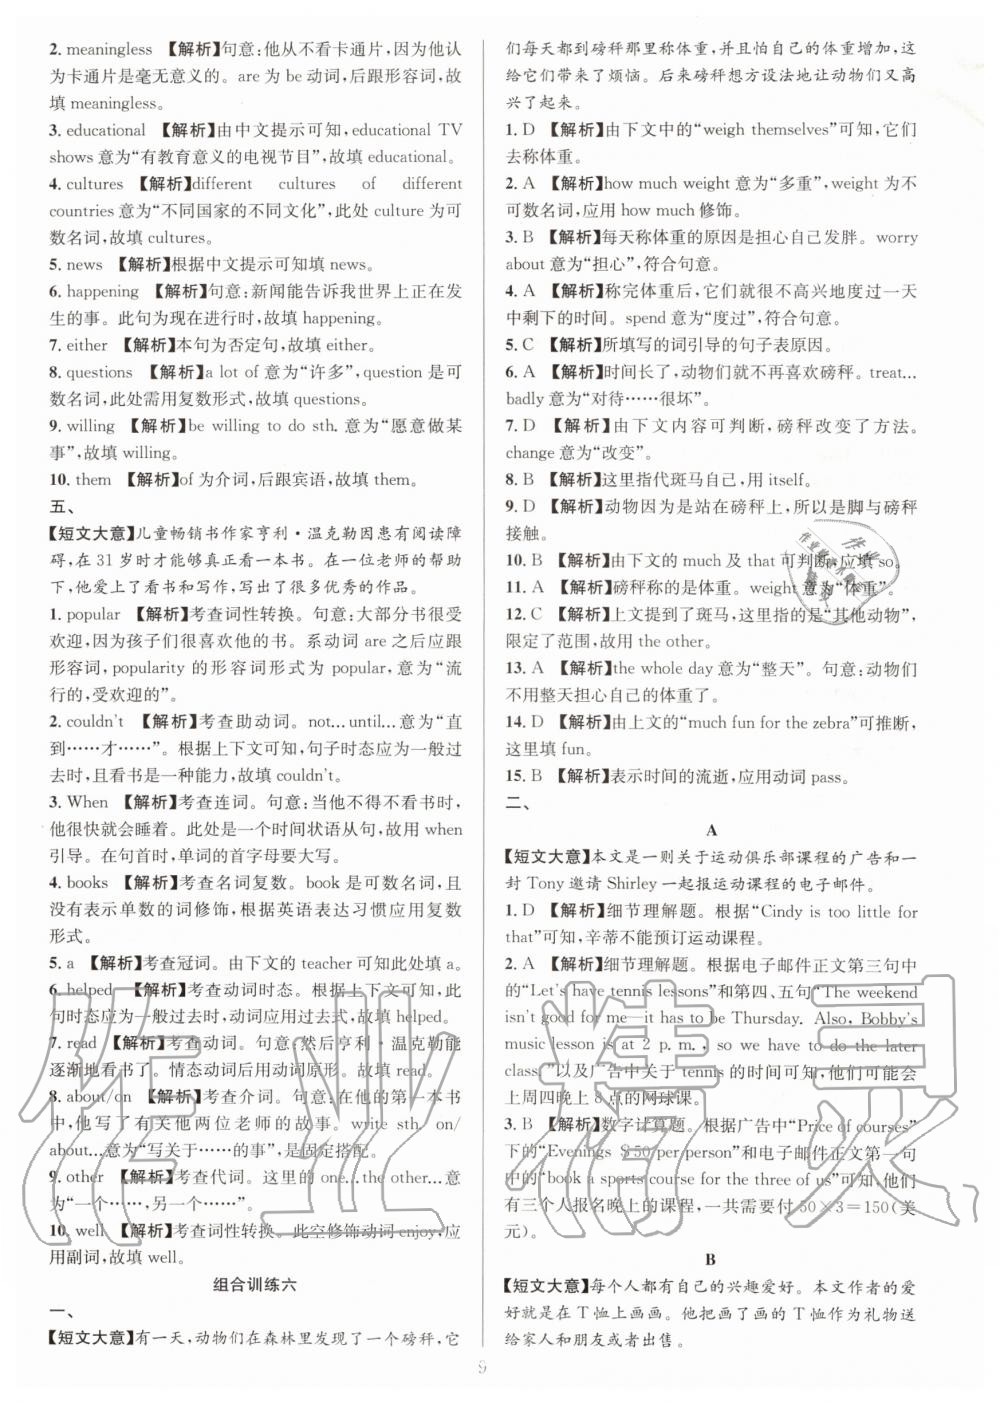 2. meaningless 【解析】句意:他从不看卡通片,因为他认
为卡通片是毫无意义的。are 为 be 动词,后跟形容词,故
填 meaningless。
3. educational 【解析】由中文提示可知,educational TV
shows 意为“有教育意义的电视节目”,故填 educational。
4. cultures 【解析】different cultures of different
countries 意为“不同国家的不同文化”,此处 culture 为可
数名词,故填 cultures。
5. news 【解析】根据中文提示可知填 news。
6. happening 【解析】句意:新闻能告诉我世界上正在发
生的事。此句为现在进行时,故填 happening。
7. either 【解析】本句为否定句,故填 either。
8. questions 【解析】a lot of 意为“许多”,question 是可
数名词,此处需用复数形式,故填 questions。
9. willing 【解析】be willing to do sth. 意为“愿意做某
事”,故填 willing。
10. them 【解析】of 为介词,后跟宾语,故填 them。
五、
【短文大意】儿童畅销书作家亨利·温克勒因患有阅读障
碍,在 31 岁时才能够真正看一本书。在一位老师的帮助
下,他爱上了看书和写作,写出了很多优秀的作品。
1. popular 【解析】考查词性转换。句意:大部分书很受
欢迎,因为孩子们很喜欢他的书。系动词 are 之后应跟
形容词,popularity 的形容词形式为 popular,意为“流
行的,受欢迎的”。
2. couldn't 【解析】考查助动词。not...until...意为“直
到……才……”。根据上下文可知,句子时态应为一般过
去时,且看书是一种能力,故填 couldn't。
3. When 【解析】考查连词。句意:当他不得不看书时,
他很快就会睡着。此处是一个时间状语从句,故用 when
引导。在句首时,单词的首字母要大写。
4. books 【解析】考查名词复数。book 是可数名词,且
没有表示单数的词修饰,根据英语表达习惯应用复数
形式。
5. a 【解析】考查冠词。由下文的 teacher 可知此处填 a。
6. helped 【解析】考查动词时态。根据上下文可知,此
句时态应为一般过去时,动词应用过去式,故填 helped。
7. read 【解析】考查动词。句意:然后亨利·温克勒能
逐渐地看书了。情态动词后用动词原形。故填 read。
8. about/on 【解析】考查介词。句意:在他的第一本书
中,他写了有关他两位老师的故事。write sth. on/
about...意为“写关于……的事”,是固定搭配。
9. other 【解析】考查代词。这里的 one...the other...意
为“一个……,另一个……”。
10. well 【解析】考查词性转换。此空修饰动词 enjoy,应
用副词,故填 well。
组合训练六
一、
【短文大意】有一天,动物们在森林里发现了一个磅秤,它
们每天都到磅秤那里称体重,并且怕自己的体重增加,这
给它们带来了烦恼。后来磅秤想方设法地让动物们又高
兴了起来。
1. D 【解析】由下文中的“weigh themselves”可知,它们
去称体重。
2. A 【解析】how much weight 意为“多重”,weight 为不
可数名词,应用 how much 修饰。
3. B 【解析】每天称体重的原因是担心自己发胖。worry
about 意为“担心”,符合句意。
4. A 【解析】称完体重后,它们就很不高兴地度过一天
中剩下的时间。spend 意为“度过”,符合句意。
5. C 【解析】所填写的词引导的句子表原因。
6. A 【解析】时间长了,动物们就不再喜欢磅秤。treat...
badly 意为“对待……很坏”。
7. D 【解析】由下文内容可判断,磅秤改变了方法。
change 意为“改变”。
8. B 【解析】这里指代斑马自己,用 itself。
9. D 【解析】动物因为是站在磅秤上,所以是脚与磅秤
接触。
10. B 【解析】由下文的 much 及 that 可判断,应填 so。
11. A 【解析】磅秤称的是体重。weight 意为“体重”。
12. C 【解析】上文提到了斑马,这里指的是“其他动物”,
限定了范围,故用 the other。
13. A 【解析】the whole day 意为“整天”。句意:动物们
不用整天担心自己的体重了。
14. D 【解析】由上文的“much fun for the zebra”可推断,
这里填 fun。
15. B 【解析】表示时间的流逝,应用动词 pass。
二、
A
【短文大意】本文是一则关于运动俱乐部课程的广告和一
封 Tony 邀请 Shirley 一起报运动课程的电子邮件。
1. D 【解析】细节理解题。根据“Cindy is too little for
that”可知,辛蒂不能预订运动课程。
2. A 【解析】细节理解题。根据电子邮件正文第三句中
的“Let's have tennis lessons”和第四、五句“The weekend
isn't good for me—it has to be Thursday. Also, Bobby's
music lesson is at 2 p. m. , so we have to do the later
class.”以及广告中关于 tennis 的时间可知,他们可能会
上周四晚上 8 点的网球课。
3. B 【解析】数字计算题。根据广告中“Price of courses”
下的“Evenings $50/per person”和电子邮件正文第一句
中的“book a sports course for the three of us”可知,他们
有三个人报名晚上的课程,一共需要付 50×3=150(美
元)。
B
【短文大意】每个人都有自己的兴趣爱好。本文作者的爱
好就是在 T 恤上画画。他把画了画的 T 恤作为礼物送
给家人和朋友或者出售。
9
作业精灵